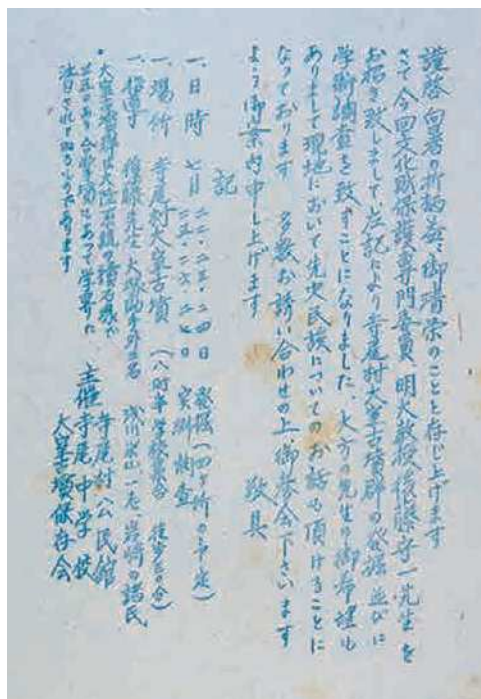 謹啓 向暑の折柄益々御清栄のことと存じ上げます
さて今回文化財保護専門委員、明大教授後藤守一先生を
お招き致しまして、左記により寺尾村大室古墳群の発掘並びに
学術調査を致すことになりました、大方の先生の御希望も
ありまして現地において先史民族についてのお話も頂けることに
なっております 多数お誘い合わせの上御参会下さいます
よう御案内申し上げます
敬具
記
一、日時 七月 二二、二三、二四日 発掘(四ヶ所の予定)
二五、二六、二七日 実測調査
一、場所 寺尾村大室古墳 (八時半学校集合 徒歩
一、指導 後藤先生 大塚助手外
大室古墳群は大陸古墳の積石塚で
学界に
注目されて
主催 寺尾村公民館
寺尾中学校
大室古墳保存会